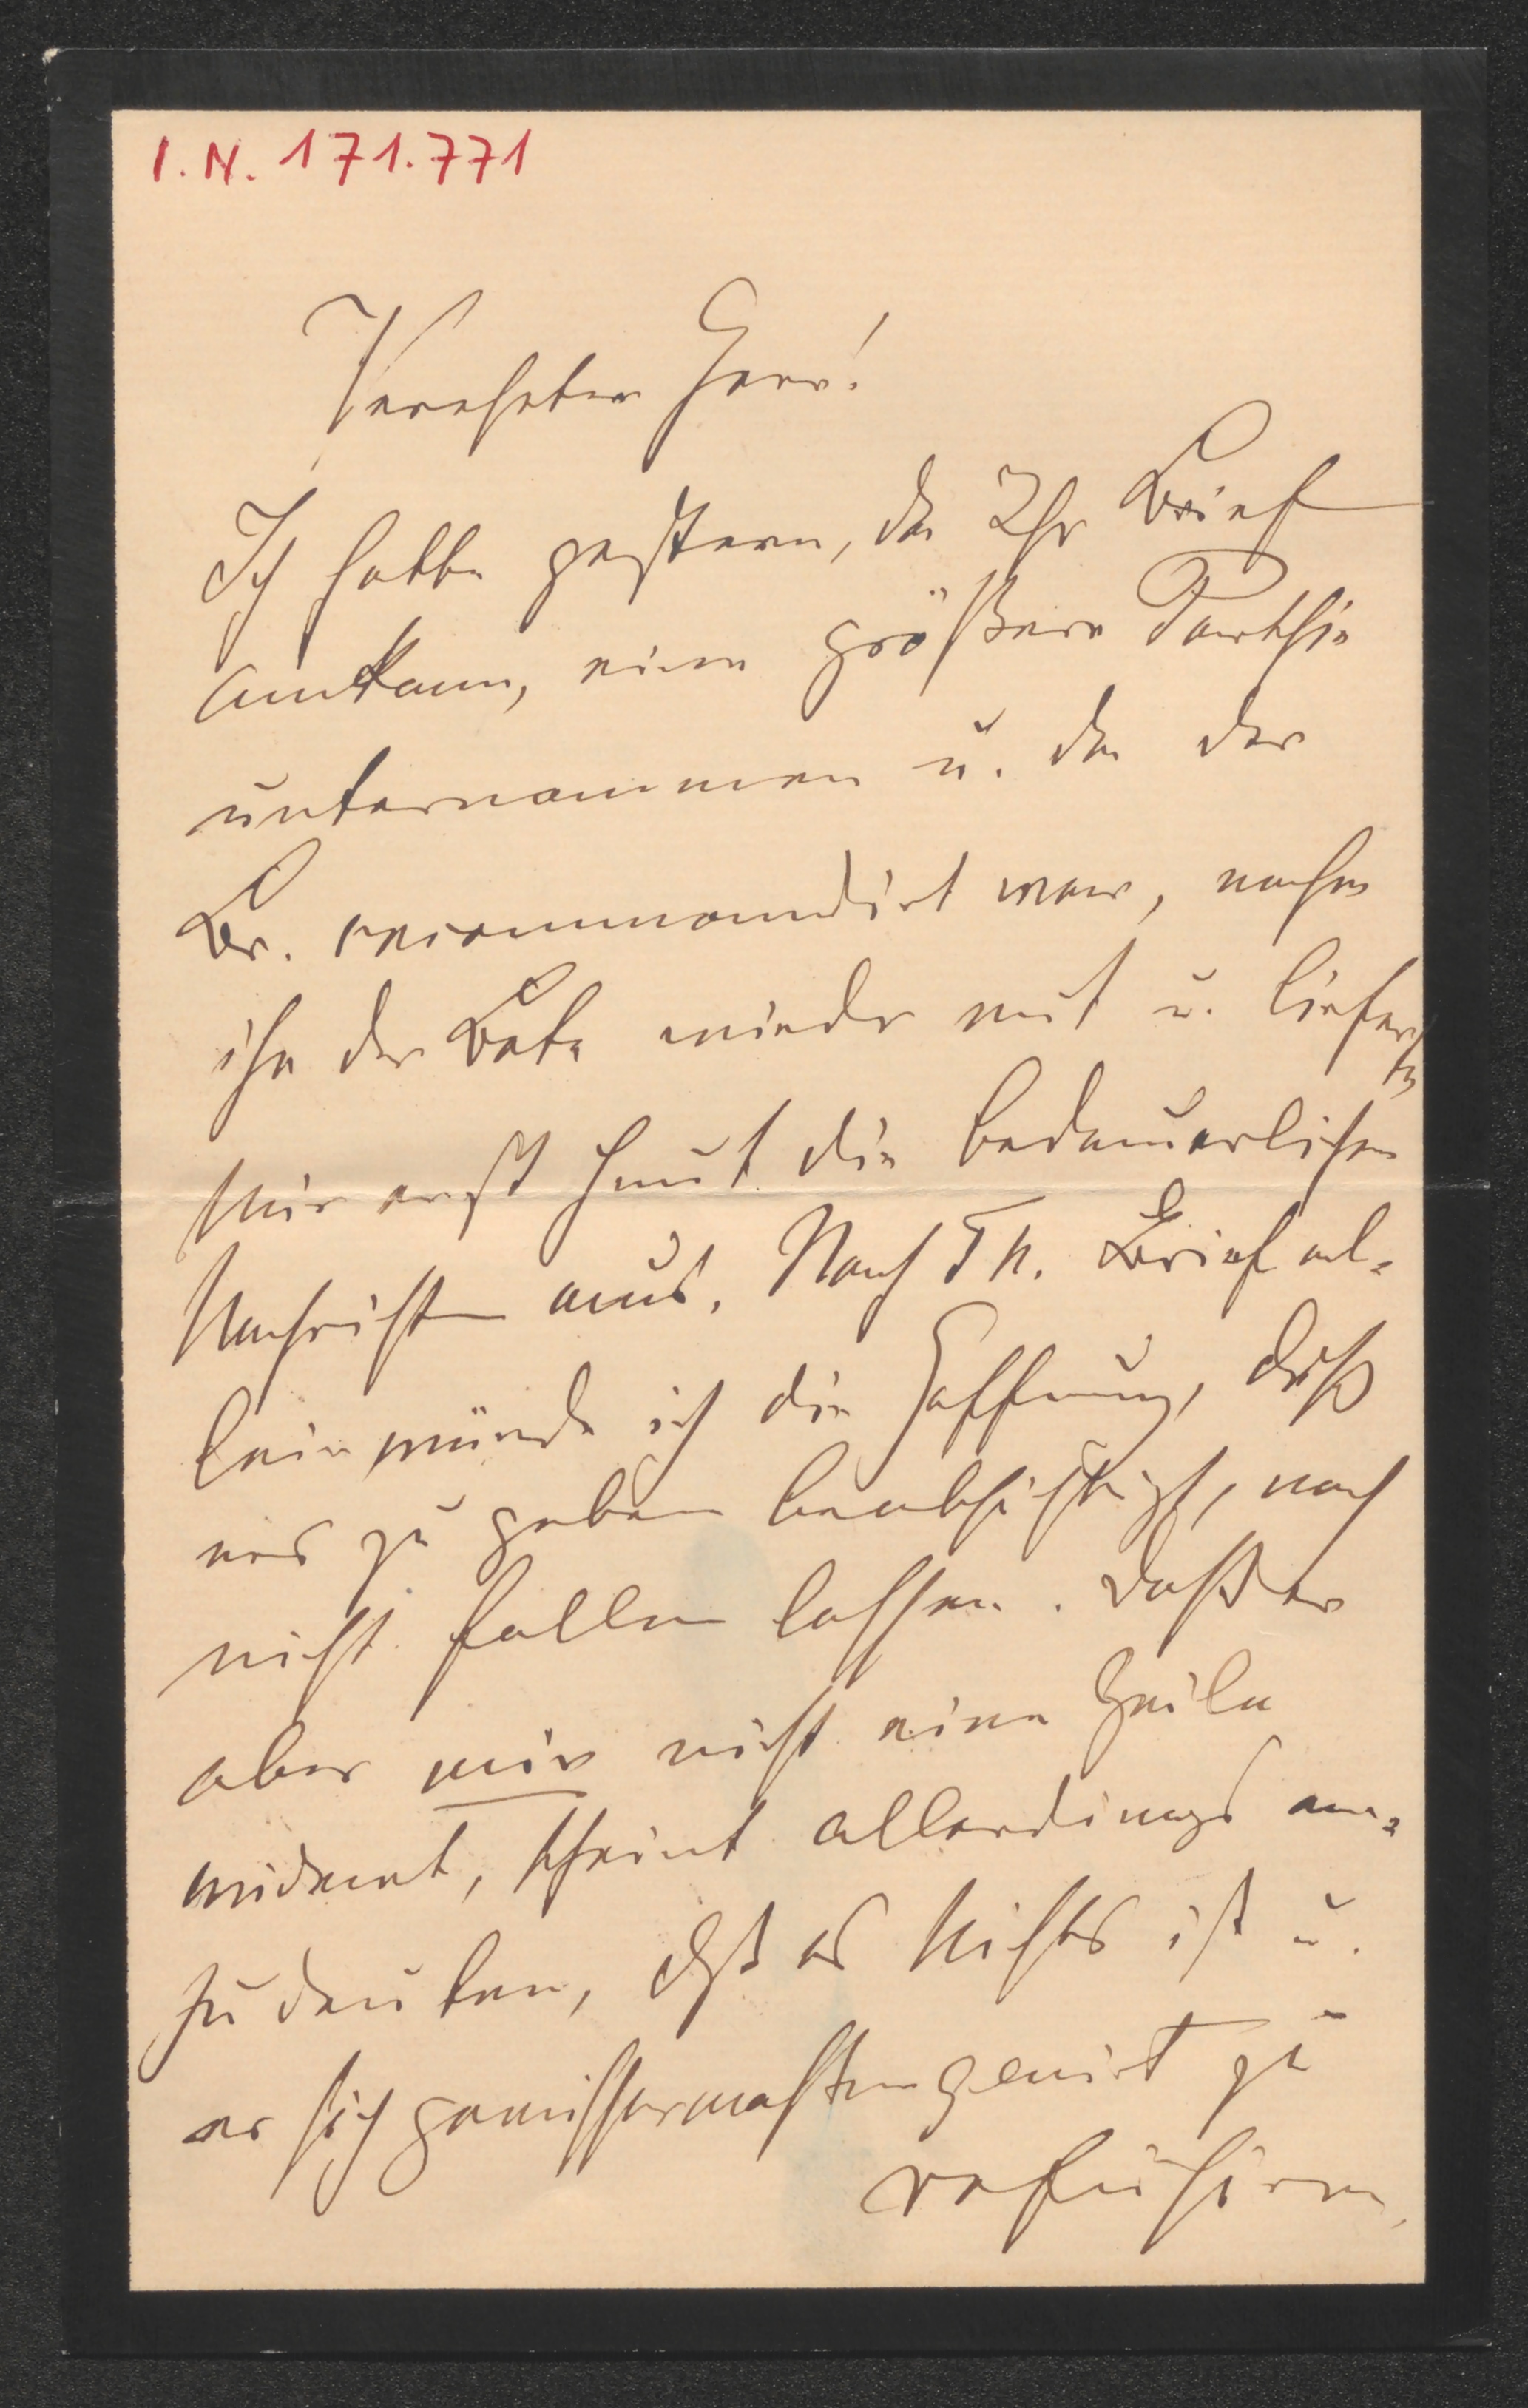 I.N. 171.771
Verehrter Herr!
Ich hatte gestern, da Ihr Brief
ankam, eine größere Parthie
unternommen u. da der
Br. recommandirt war, nahm
ihn der Bote wieder mit u. lieferte
mir erst heut die bedauerlichen
Nachrichten aus. Nach Th. Brief al-
lein würde ich die Hoffnung, daß
er's zu geben beabsichtigt, noch
nicht fallen lassen. Daß er
aber mir nicht eine Zeile
widmet, scheint allerdings an-
zudeuten, daß es Nichts ist u.
er sich gewissermaßen genirt zu
refüsiren,